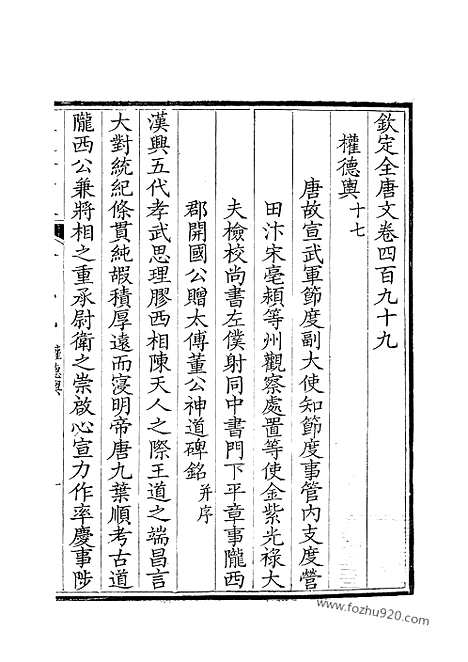 欽定全唐文卷四百九十九
權德輿十七
唐故宣武軍節度副大使知節度事管內支度營
田汴宋亳潁等州觀察處置等使金紫光祿大
夫檢校尚書左僕射同中書門下平章事隴西
郡開國公贈太傅董公神道碑銘并序
漢興五代孝武思理膠西相陳天人之際王道之端昌言
大對統紀條貫純嘏積厚遠而寖明帝唐九葉順考古道
隴西公兼將相之重承尉衛之崇啟心宣力作率慶事陟
權德輿
一
www.fozhu920.com